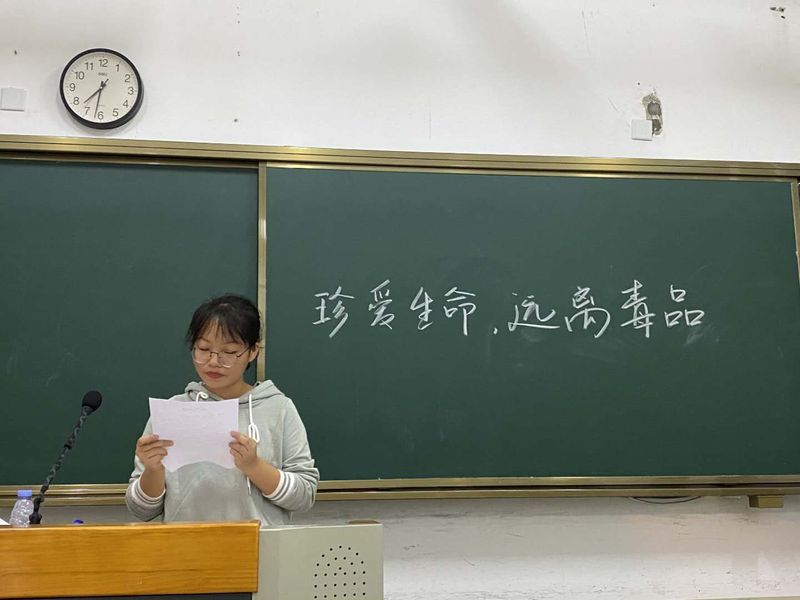 12
1
2
3
4
5
6
7
8
9
10
11
珍爱生命,远离毒品